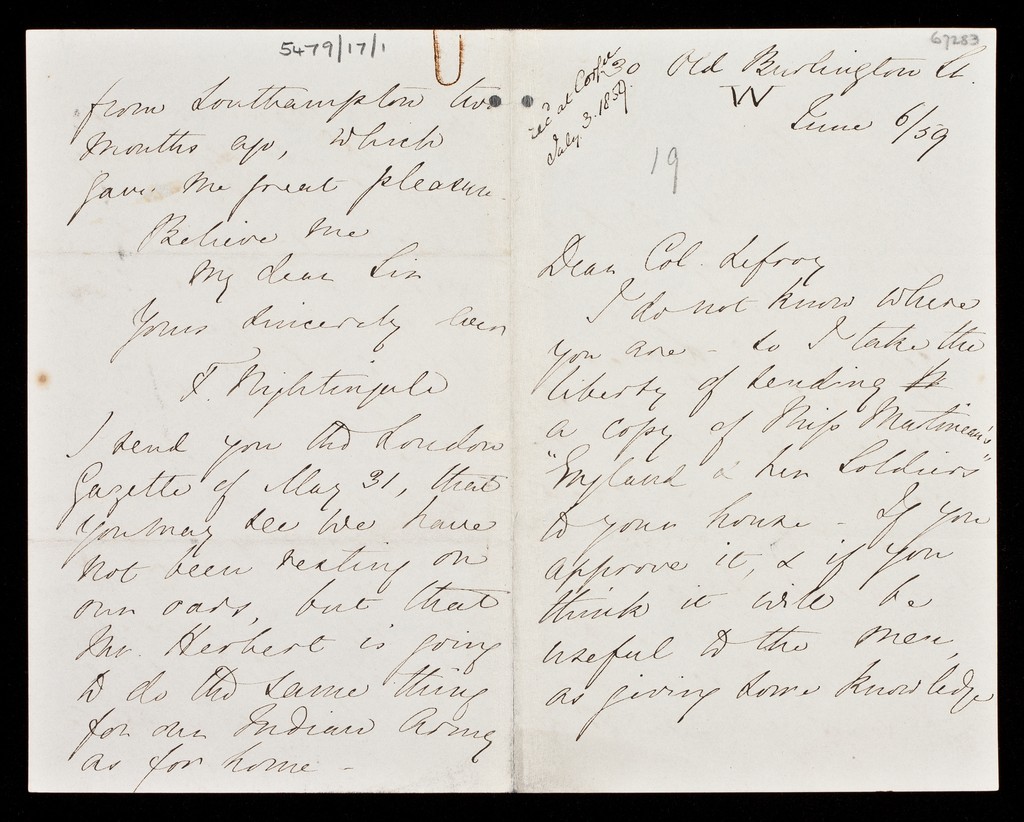 5479/17/1
from Southampton two
months ago, which
gave me great pleasure.
Believe me
my dear Sir
Yours sincerely ever
F. Nightingale
I send you the London
Gazette of May 31, that
you may see we have
not been resting on
our oars, but that
Mr. Herbert is going
to do the same thing
for our Indian Army
as for home -
67283
30 Old Burlington St.
W
June 6/59
recd at Corfu
July 3. 1859.
19
Dear Col. Lefroy
I do not know where
you are - so I take the
liberty of sending
a copy of Miss Martineau's
"England & her Soldiers"
to your house - If you
approve it, & if you
think it will be
useful to the men,
as giving some knowledge